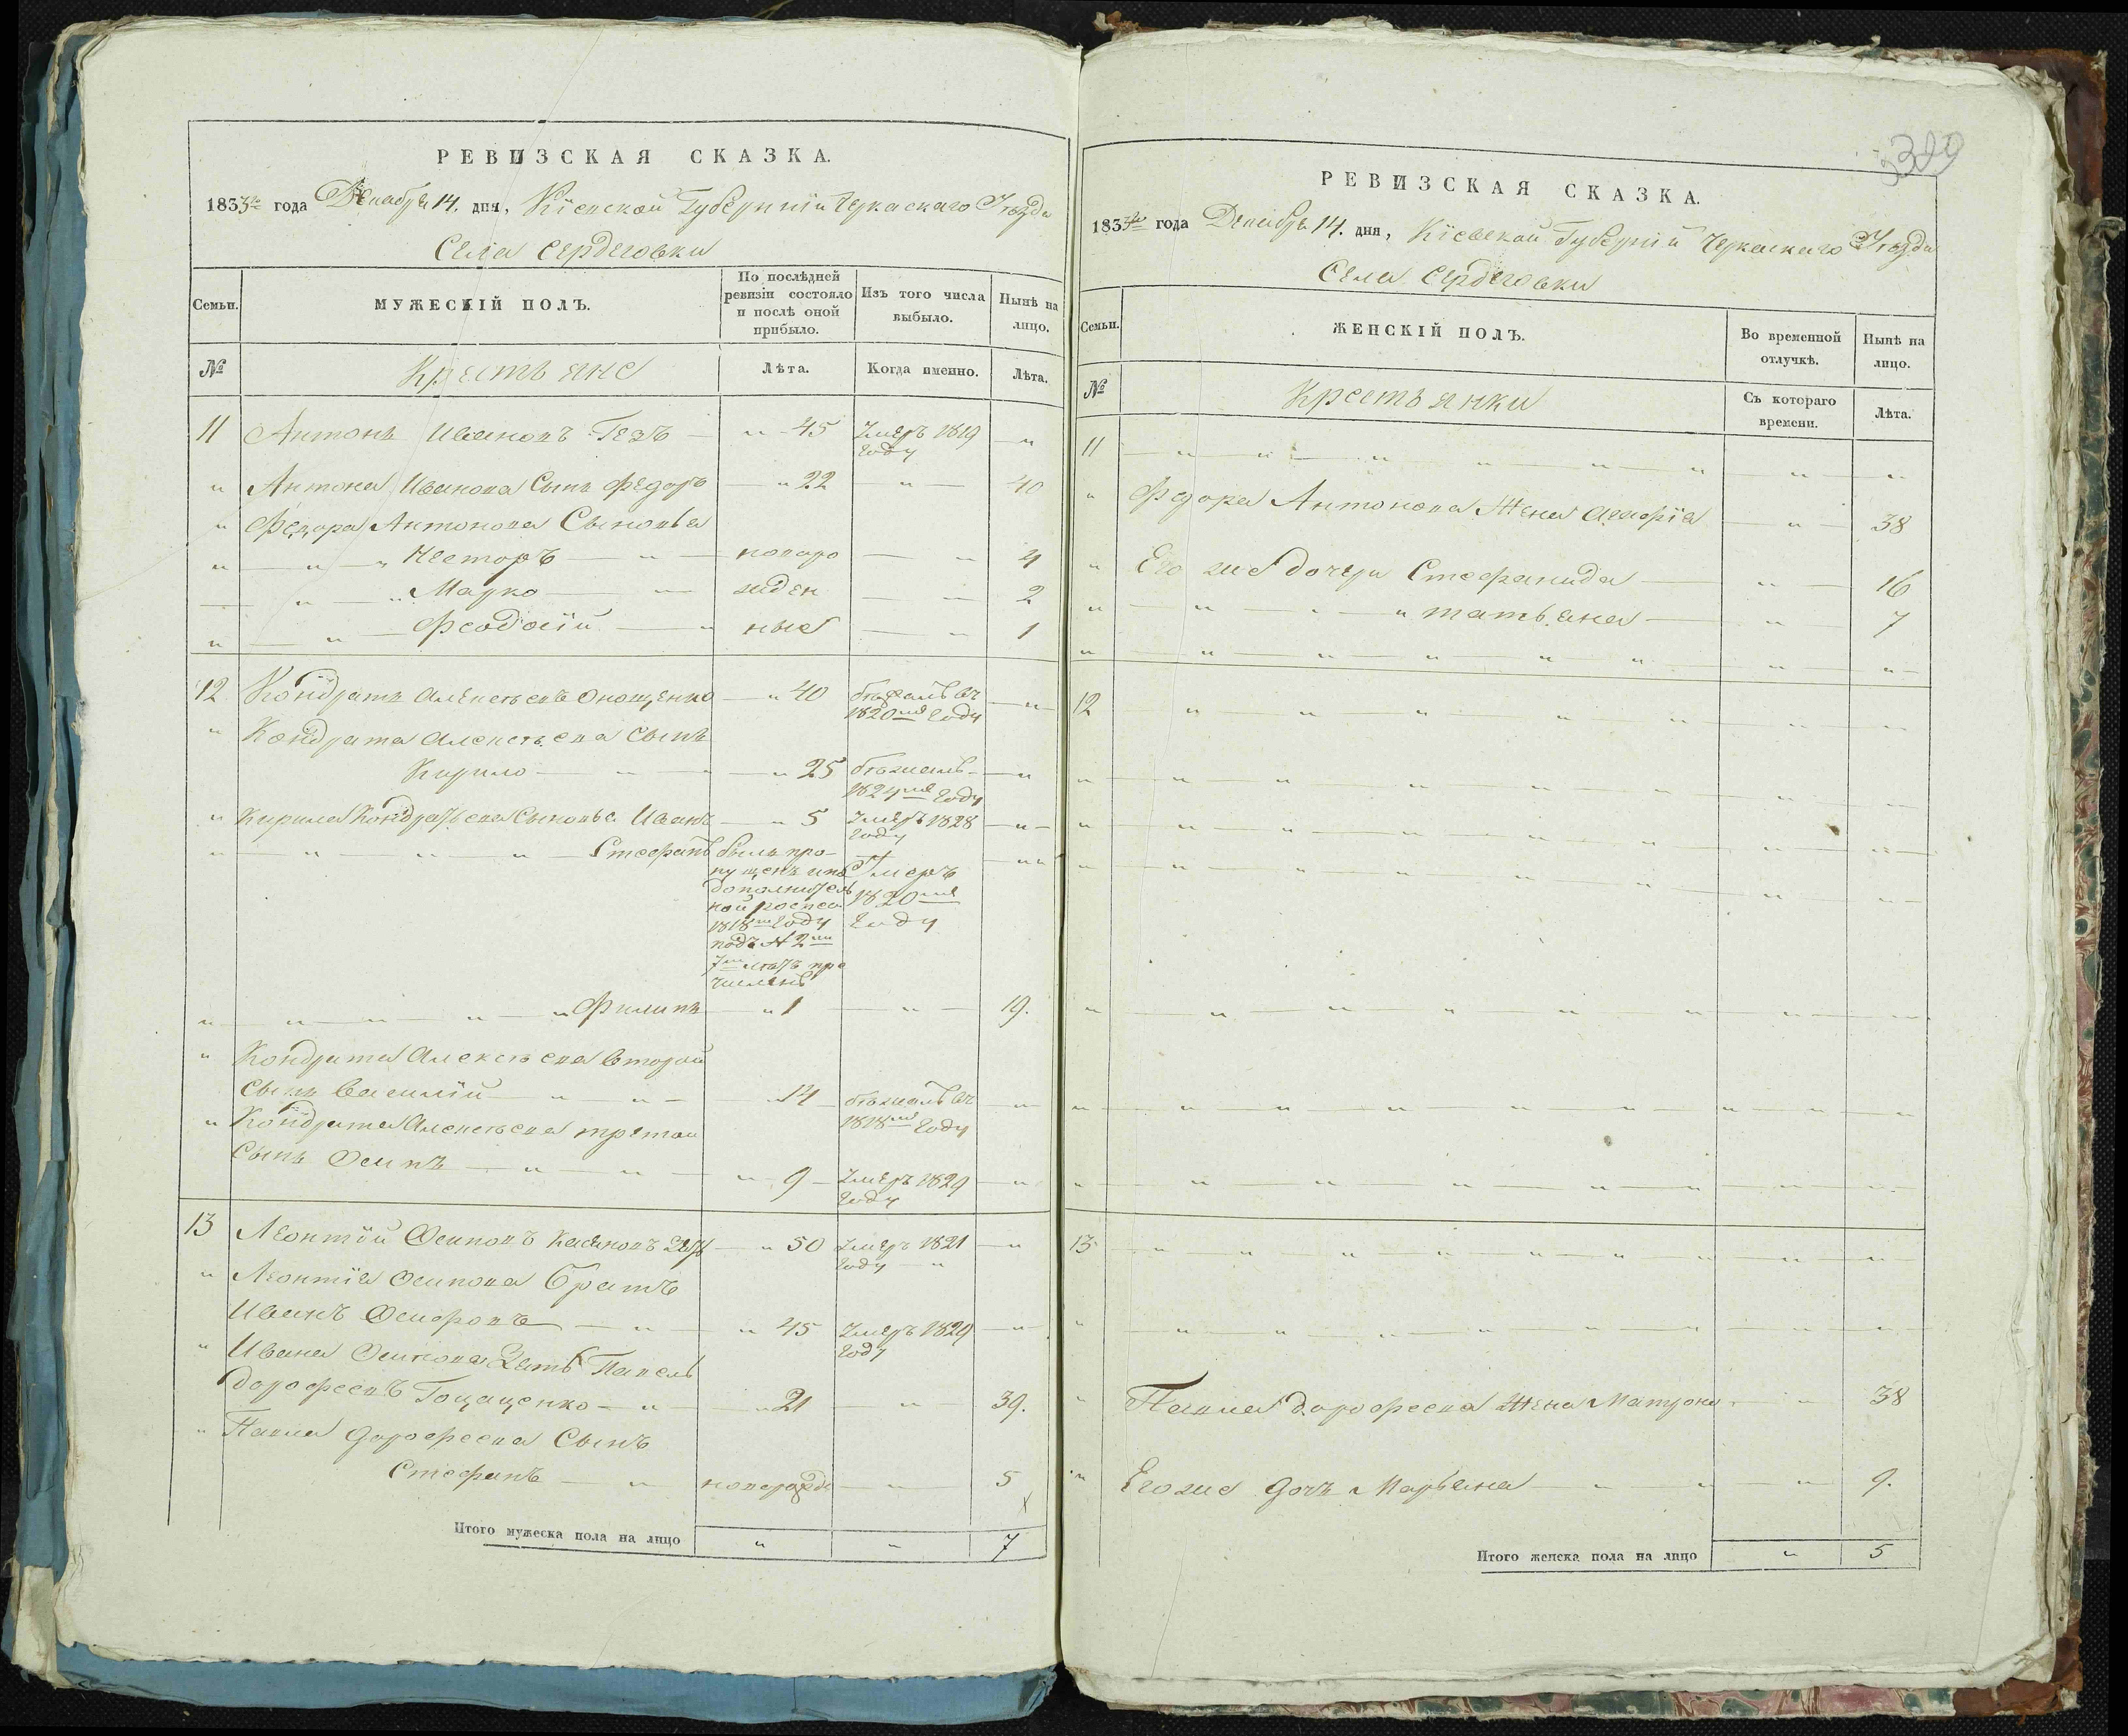 РЕВИЗСКАЯ СКАЗКА.
года Декабря 14. дня, Кіевской Губерніи Черкаскаго Уѣзда
Села Сердеговки
Семьи.
МУЖЕСКІЙ ПОЛЪ.
По послѣдней ревизіи состояло и послѣ оной прибыло.
Изъ того числа выбыло.
Нынѣ на лицо.
№
Крестьяне
Лѣта.
Когда именно.
Лѣта.
11 Антонъ Ивановъ — „ 45 Умеръ 1819 году — „
„ Антона Иванова Сынъ Федоръ — „ 22 „ — 40
„ Федора Антонова Сыновья
„ — „ — „ Несторъ — „ — новоро — „ 4
— „ — „ Марко — „ жден — — 2
„ — „ — Феодосій — „ ные — „ 1
12 Кондратъ Алексѣевъ Онощенко — „ 40 бѣжалъ въ 1820мъ году — „ —
„ Кондрата Алексѣева Сынъ
Кирило — „ — „ — „ 25 бѣжалъ 1824мъ году — „
„ Кирила Кондратьева Сыновья Иванъ — „ 5 Умеръ 1828 году — „ —
„ — „ — „ — „ — Стефанъ былъ про-
пущенъ и по
дополнитель
ной
1818мъ году
подъ № 2мъ
7ми лѣтъ при
численъ
Умеръ
1820мъ
году
„ — „ — „ — „ — „ Филипъ — „ 1 — „ — 19.
„ Кондрата Алексѣева второй
сынъ Василій — „ — „ — „ 14 бѣжалъ въ 1818мъ году — „
„ Кондрата Алексѣева третой
Сынъ Осипъ — „ — „ — „ 9 — Умеръ 1829 году — „
13 Леонтій Осиповъ — „ 50 Умеръ 1821 году — „
„ Леонтія Осипова Братъ
Иванъ Осифовъ — „ — „ 45 Умеръ 1829 году — „
„ Ивана Осипова Зять Павелъ
Дорофеевъ — „ — „ 21 „ 39.
„ Павла Дорофеева Сынъ
Стефанъ — „ — „ — 5
Итого мужеска пола на лицо „ „ 7
РЕВИЗСКАЯ СКАЗКА.
года Декабря 14. дня, Кіевской Губерніи Черкаскаго Уѣзда
Села Сердеговки
Семьи.
ЖЕНСКІЙ ПОЛЪ.
Во временной отлучкѣ.
Нынѣ на лицо.
№
Крестьянки
Съ котораго времени.
Лѣта.
11
„ Федора Антонова Жена — „ — 38
„ Его же дочери Стефанида — „ — 16
„ — „ — „ — „ Татьяна — „ 7
12
13
„ Павла Дорофеева Жена Матрона — „ 38
„ Его же дочь Марьяна — „ — „ — „ 9.
Итого женска пола на лицо „ 5